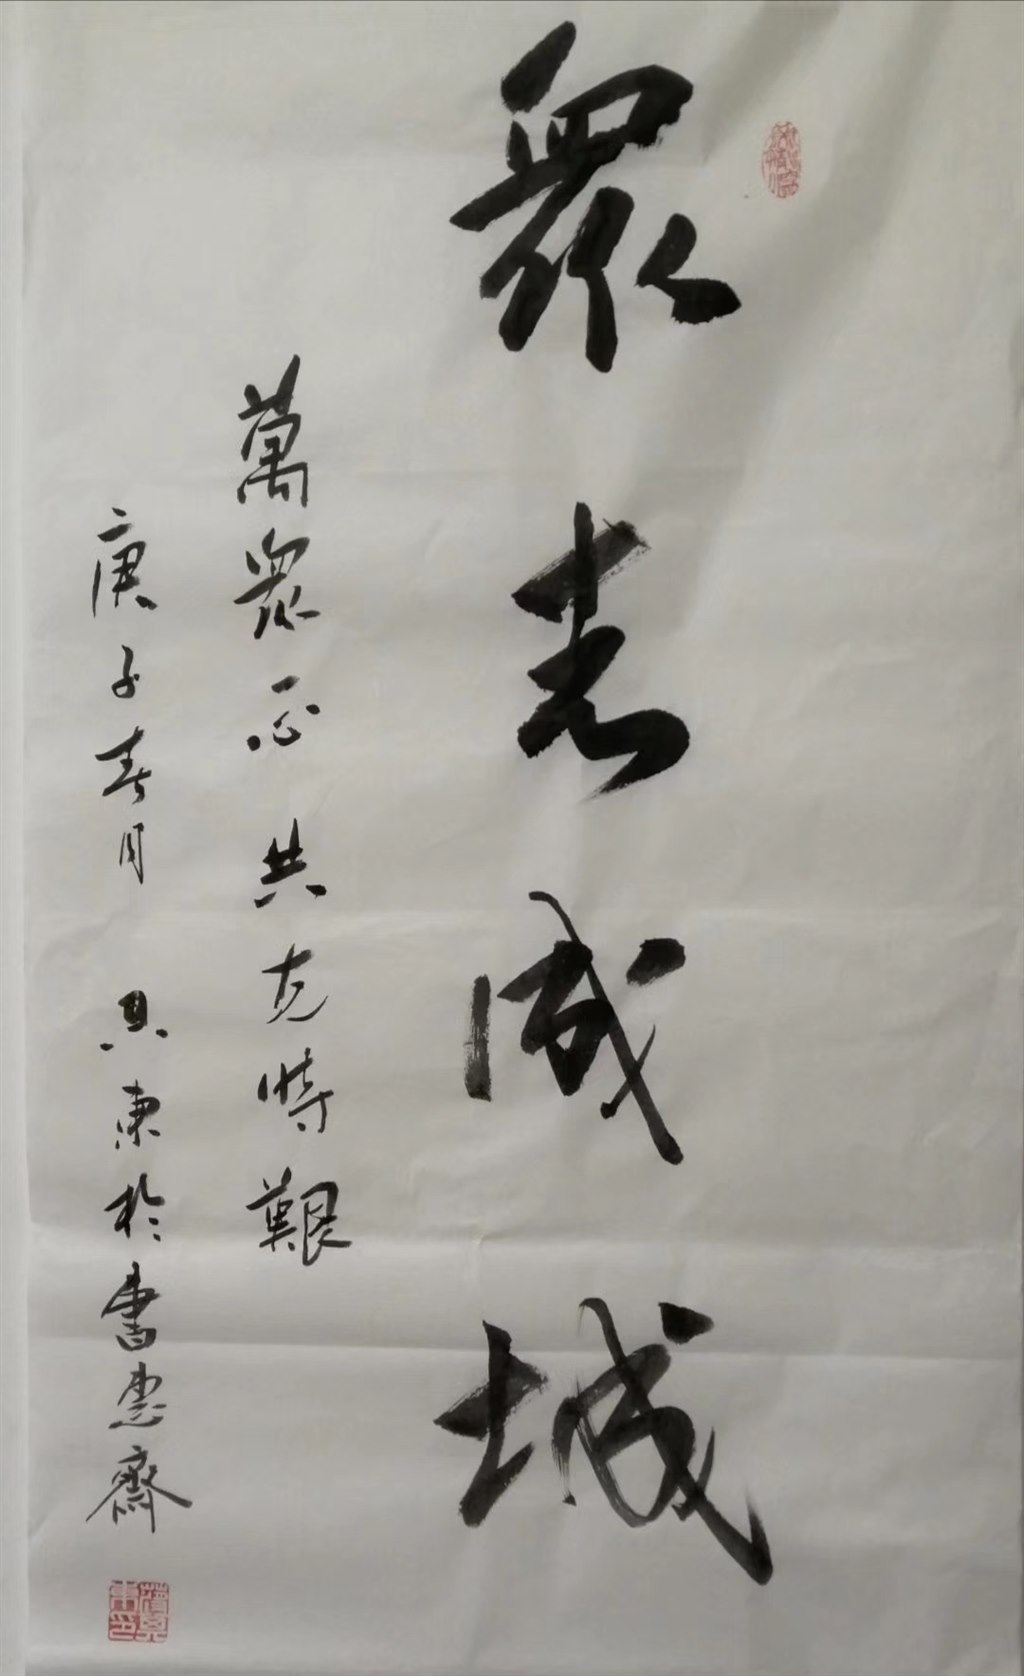 眾志成城
萬眾一心 共克時艱
庚子春月 昊東於書惠齋